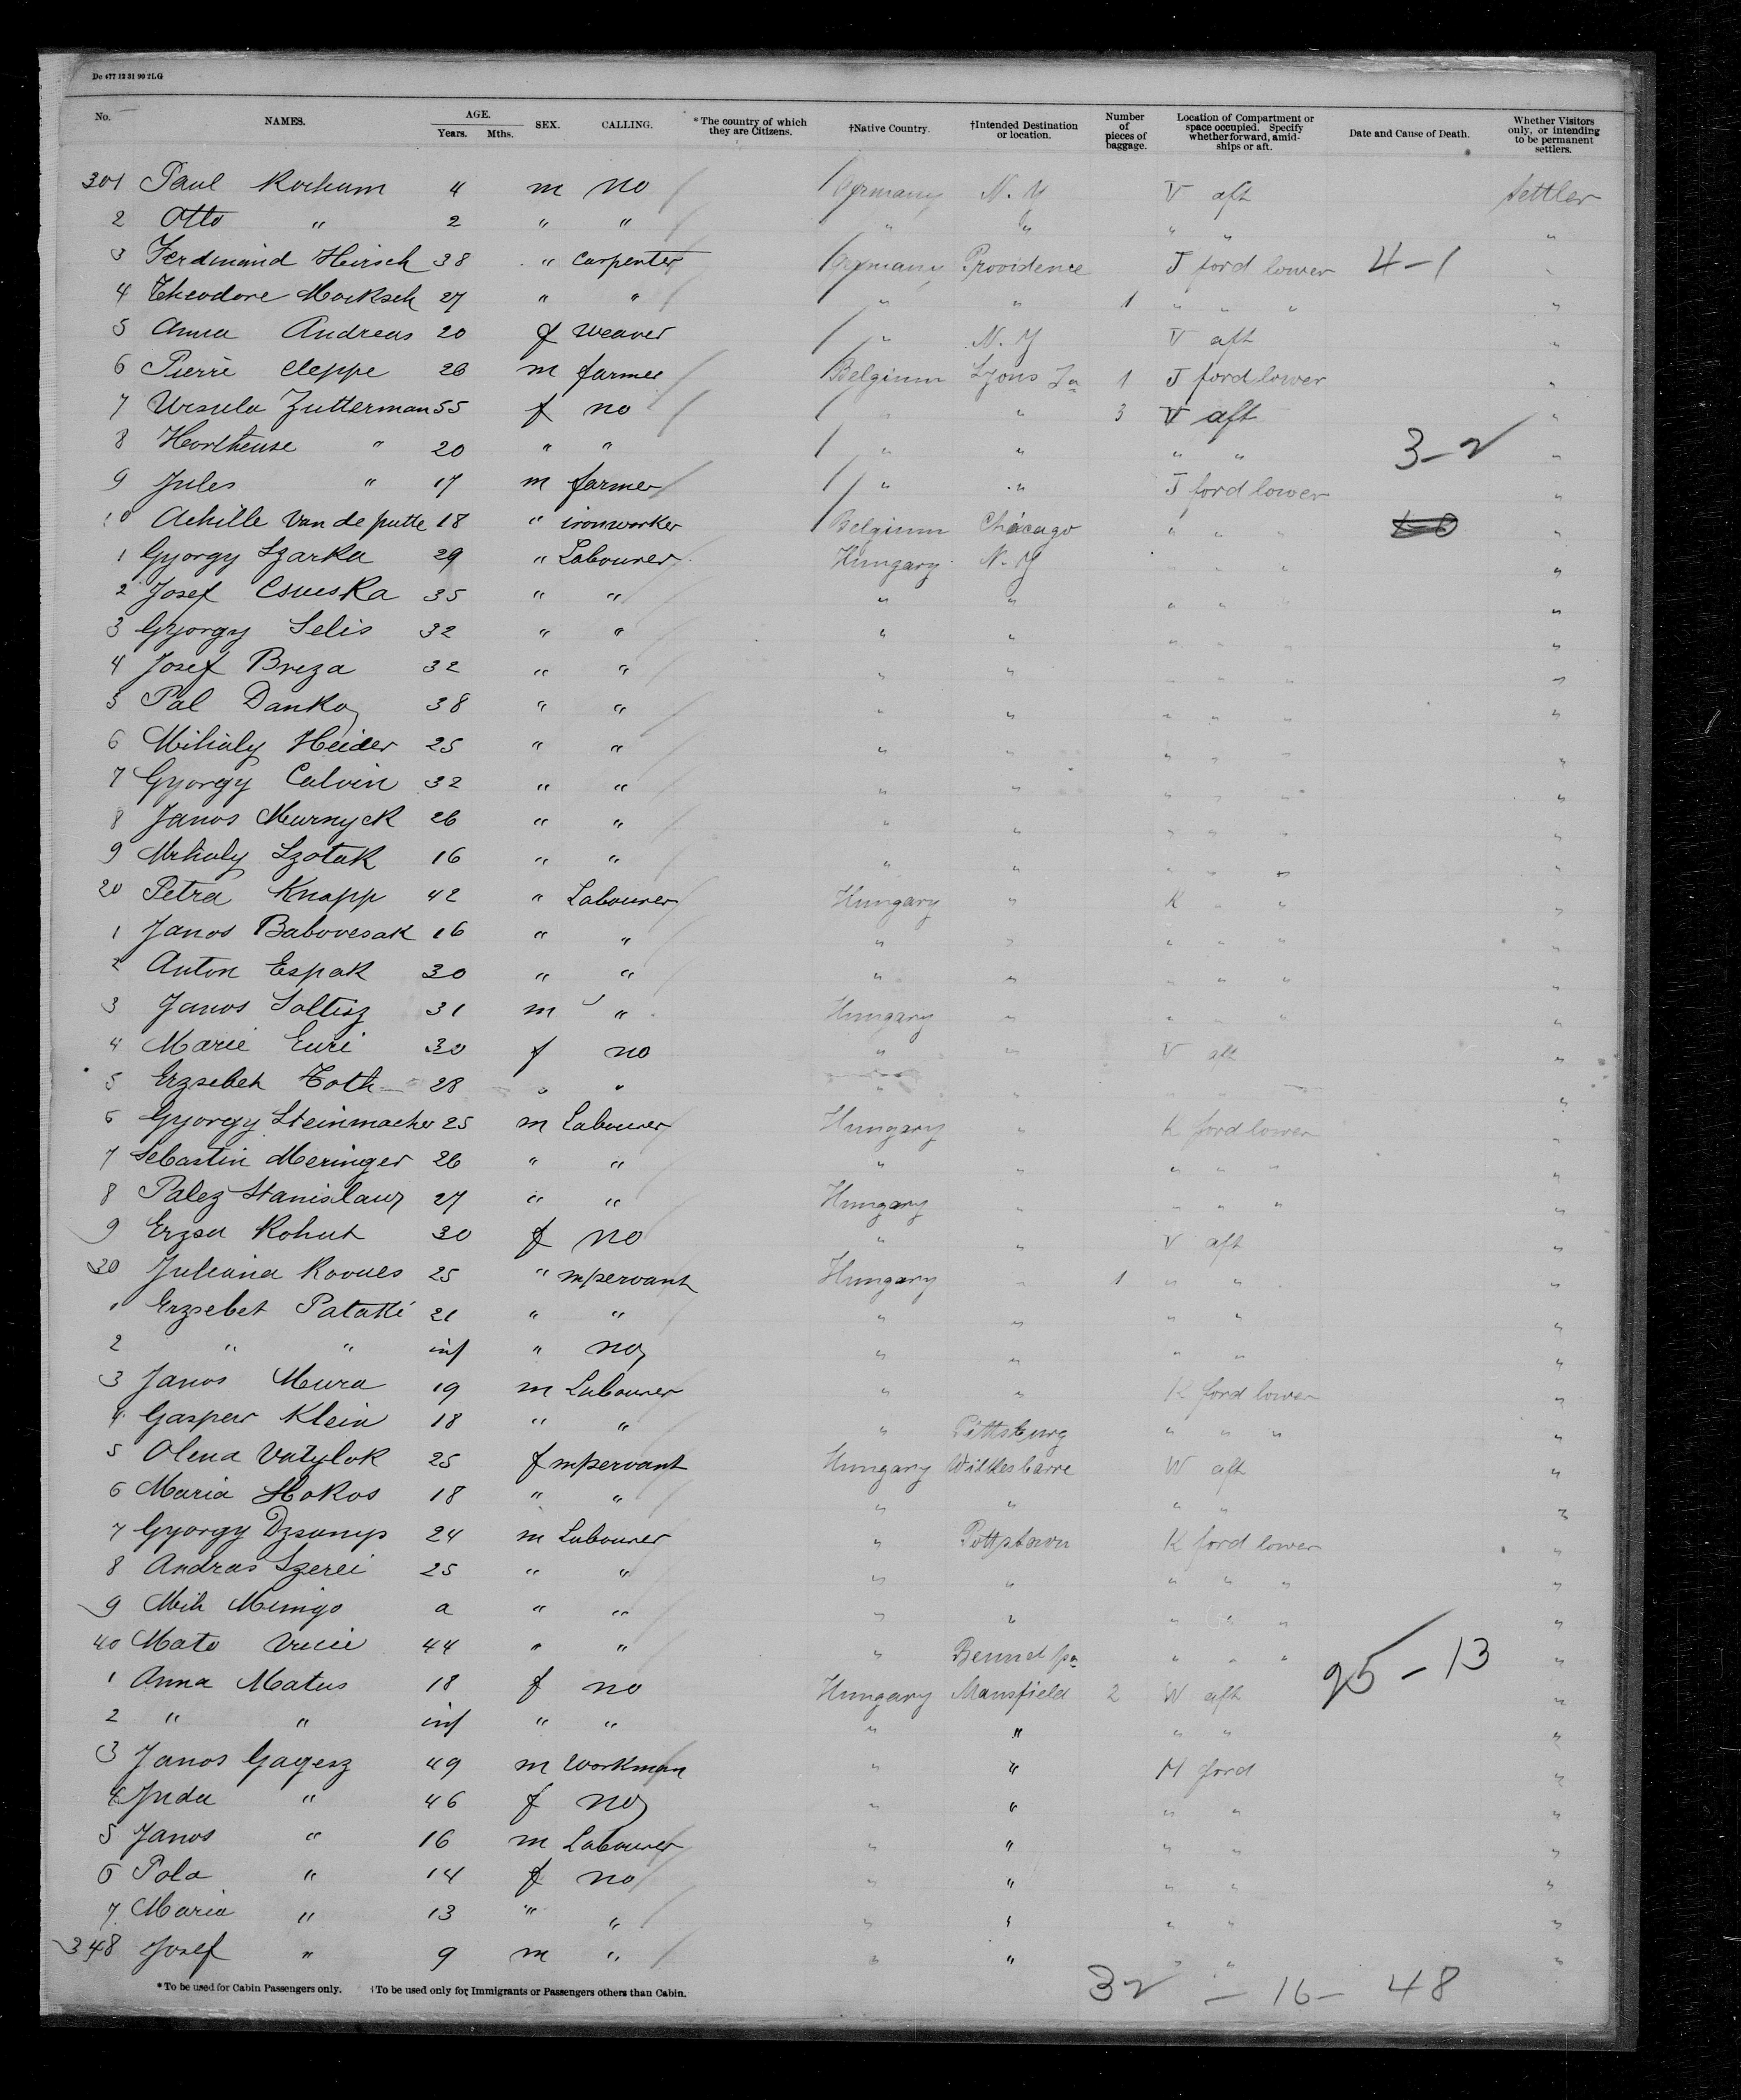 Dc 477 12 31 90 2LG
No. NAMES. AGE. Years. Mths. SEX. CALLING. *The country of which they are Citizens. †Native Country. †Intended Destination or location. Number of pieces of baggage. Location of Compartment or space occupied. Specify whether forward, amidships or aft. Date and Cause of Death. Whether Visitors only, or intending to be permanent settlers.
301 Paul Rochum 4 m no Germany N.Y V aft settler
2 Otto " 2 " " " " " " "
3 Ferdinand Hirsch 38 " carpenter Germany Providence J ford lower 4-1 "
4 Theodore Mocksch 27 " " " " 1 " " " "
5 Anna Andreas 20 f weaver " N.Y V aft "
6 Pierre Cleppe 26 m farmer Belgium Lyons 1 J ford lower "
7 Ursula Zutterman 55 f no " " 3 V aft "
8 Hortheuse " 20 " " " " " " 3-2 "
9 Jules " 17 m farmer " " J ford lower "
10 Achille Van de putte 18 " ironworker Belgium Chicago " " " "
1 Gyorgy Szarka 29 " Labourer Hungary N.Y " " " "
2 Josef Csueska 35 " " " " " " "
3 Gyorgy Selis 32 " " " " " " " "
4 Josef Breza 32 " " " " " " " "
5 Pal Danko 38 " " " " " " " "
6 Mihaly Heider 25 " " " " " " " "
7 Gyorgy Calvin 32 " " " " " " " "
8 Janos Murnyck 26 " " " " " " " "
9 Mihaly Szotak 16 " " " " " " " "
20 Petra Knapp 42 " Labourer Hungary " K " " "
1 Janos Babovesak 16 " " " " " " " "
2 Anton Espak 30 " " " " " " " "
3 Janos Soltisz 31 m " Hungary " " " " "
4 Marie Euri 30 f no " " V aft "
5 Erzsebet Toth 28 " " " " " "
6 Gyorgy Steinmacher 25 m Labourer Hungary " K ford lower "
7 Sebastin Meringer 26 " " " " " " " "
8 Palez Stanislaw 27 " " Hungary " " " " "
9 Erzsu Kohut 30 f no " " V aft "
30 Juliana Kovacs 25 " mservant Hungary " 1 " " "
1 Erzsebet Pataki 21 " " " " " " "
2 " " inf " no " " " " "
3 Janos Mura 19 m Labourer " " K ford lower "
4 Gasper Klein 18 " " " Pittsburg " " " "
5 Olena Vatylok 25 f mservant Hungary Wilkesbarre W aft "
6 Maria Hokos 18 " " " " " " "
7 Gyorgy Dzsunys 24 m Labourer " Pottstown K ford lower "
8 Andras Szerei 25 " " " " " " " "
9 Mih Mingo a " " " " " " " "
40 Mato Vucic 44 " " " " " " "
1 Anna Matus 18 f no Hungary Mansfield 2 W aft 25-13 "
2 " " inf " " " " " " "
3 Janos Gagesz 49 m workman " " H ford "
4 Juda " 46 f no " " " " "
5 Janos " 16 m Labourer " " " " "
6 Pola " 14 f no " " " " "
7 Maria " 13 " " " " " " "
348 Josef " 9 m " " " " " "
*To be used for Cabin Passengers only. †To be used only for Immigrants or Passengers others than Cabin.
32 - 16 - 48